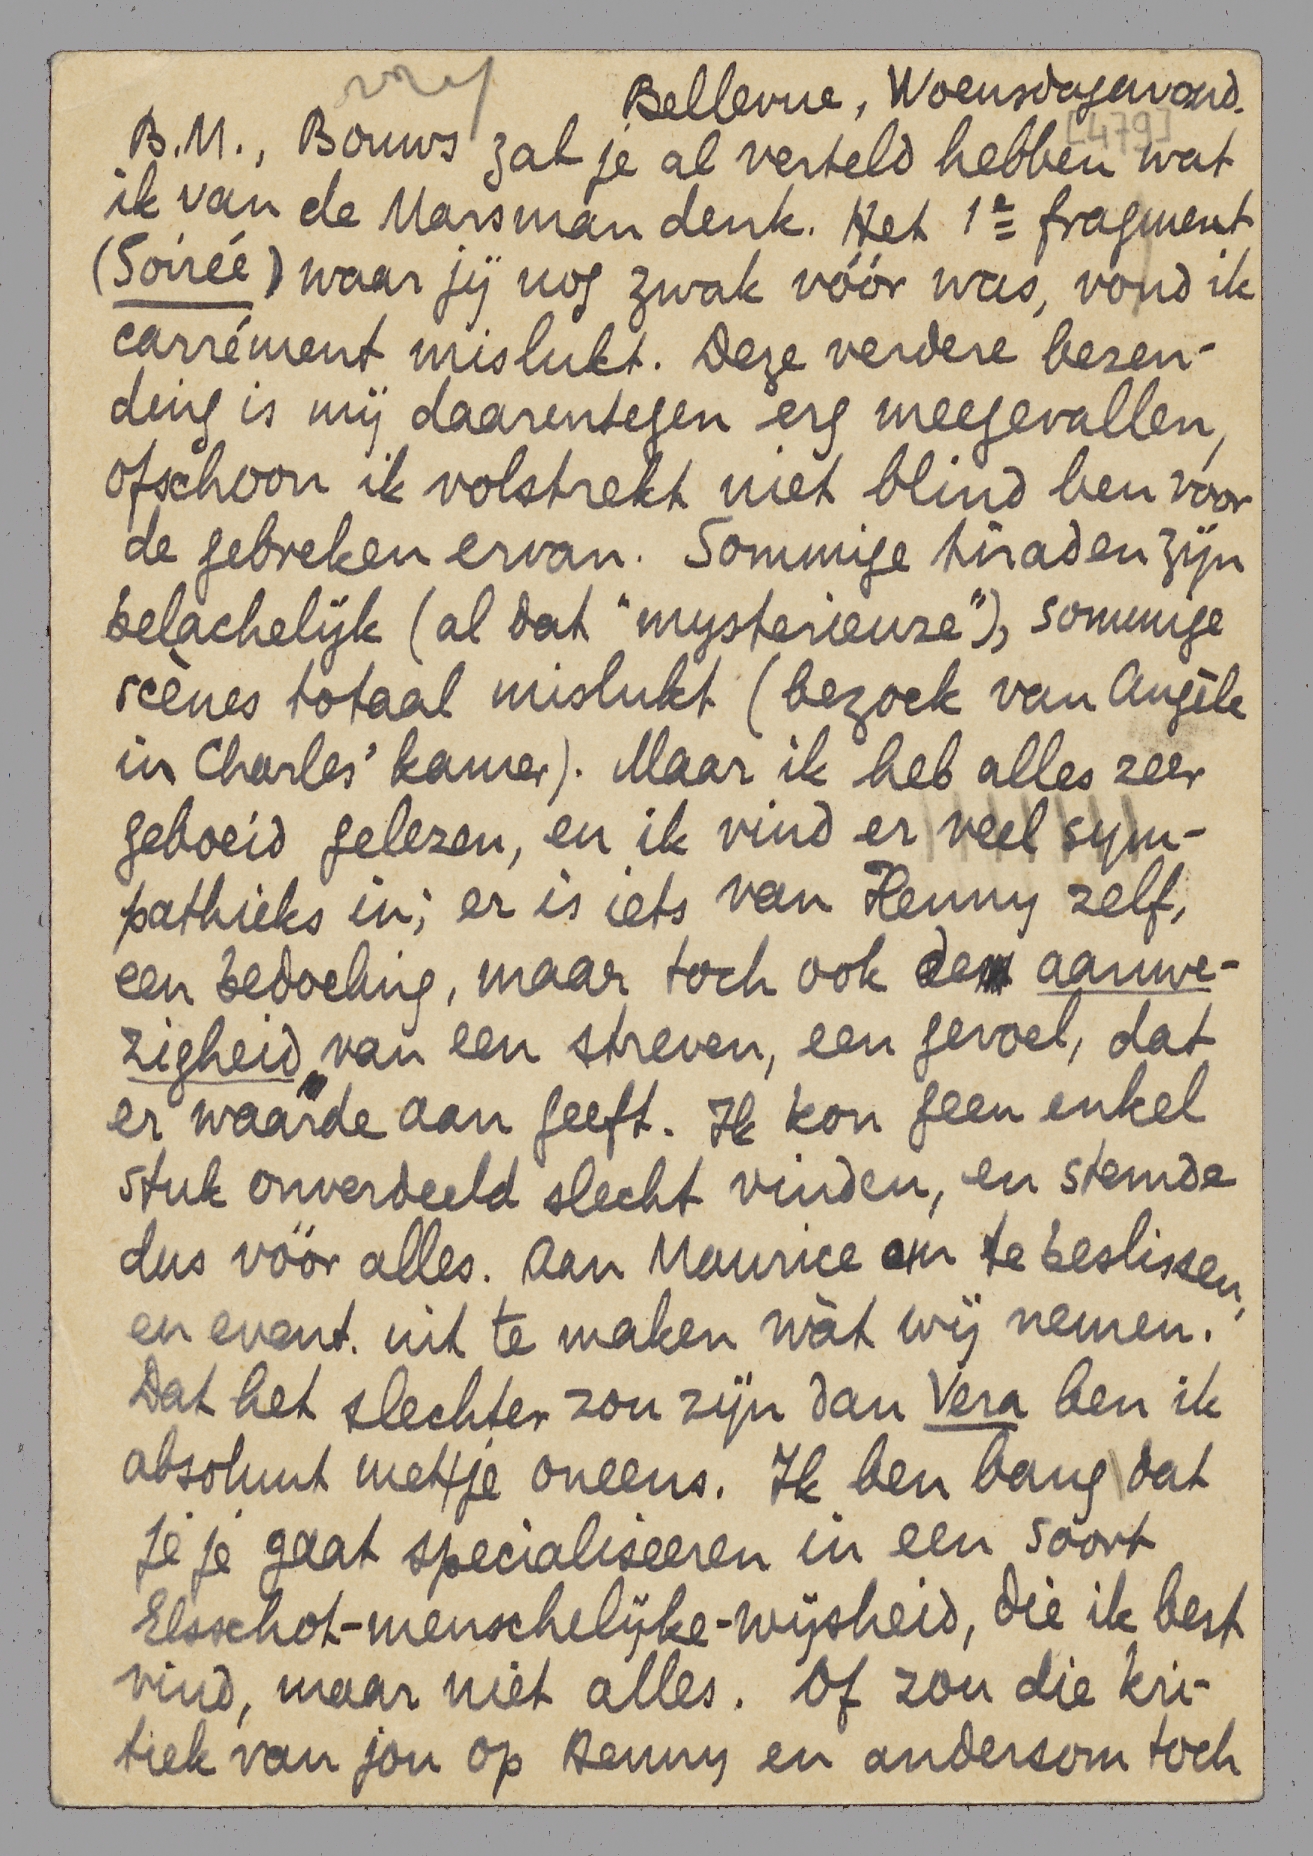 Bellevue, Woensdagavond.
[479]
B.M., Bouws zal je al verteld hebben wat
ik van de Marsman denk. Het 1e fragment
(Soirée) waar jij nog zwak vóór was, vond ik
carrément mislukt. Deze verdere bezen-
ding is mij daarentegen erg meegevallen,
ofschoon ik volstrekt niet blind ben voor
de gebreken ervan. Sommige tiraden zijn
belachelijk (al dat "mysterieuze"), sommige
scènes totaal mislukt (bezoek van Angèle
in Charles' kamer). Maar ik heb alles zeer
geboeid gelezen, en ik vind er veel sym-
pathieks in; er is iets van Henny zelf,
een bedoeling, maar toch ook de aanwe-
zigheid van een streven, een gevoel, dat
er waarde aan geeft. Ik kon geen enkel
stuk onverdeeld slecht vinden, en stemde
dus vóór alles. Aan Maurice om te beslissen,
en event. uit te maken wàt wij nemen.
Dat het slechter zou zijn dan Vera ben ik
absoluut met je oneens. Ik ben bang dat
je je gaat specialiseeren in een soort
Elsschot-menschelijke-wijsheid, die ik best
vind, maar niet alles. Of zou die kri-
tiek van jou op Henny en andersom toch